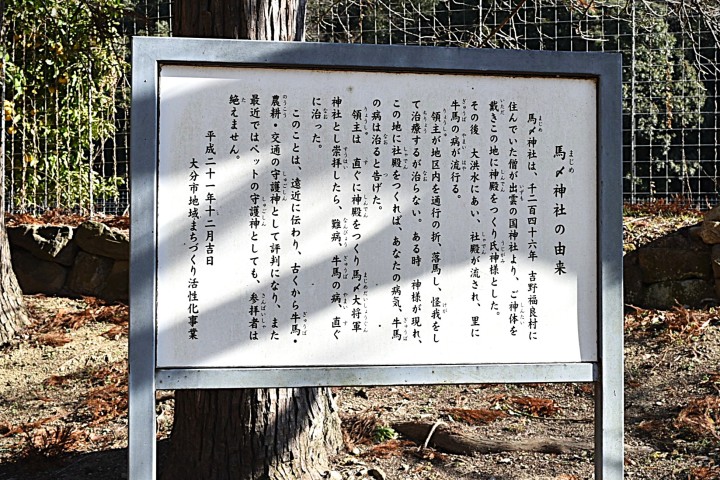 馬〆神社の由来
馬〆神社は、千二百四十六年、吉野福良村に
住んでいた僧が出雲の国神社より、ご神体を
戴きこの地に神殿をつくり氏神様とした。
その後、大洪水にあい、社殿が流され、里に
牛馬の病が流行る。
領主が地区内を通行の折、落馬し、怪我をし
て治療するが治らない、ある時、神様が現れ、
この地に社殿をつくれば、あなたの病気、牛馬
の病は治ると告げた。
領主は、直ぐに神殿をつくり馬〆大将軍
神社として崇拝したら、難病、牛馬の病、直ぐ
に治った。
このことは、遠近に伝わり、古くから牛馬・
農耕・交通の守護神として評判になり、また
最近ではペットの守護神としても、参拝者は
絶えません。
平成二十一年十二月吉日
大分市地域まちづくり活性化事業